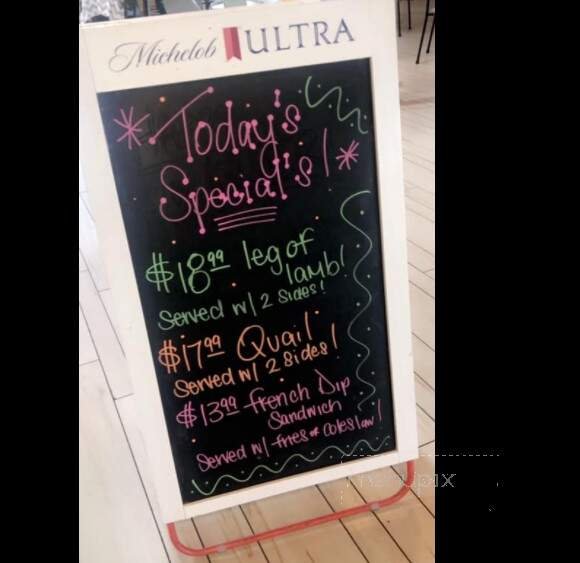 Michelob ULTRA
Today's
Special's!
$18.99 leg of
lamb!
Served w/ 2 sides!
$17.99 Quail
Served w/ 2 sides!
$13.99 french Dip
Sandwich
Served w/ fries or coleslaw!